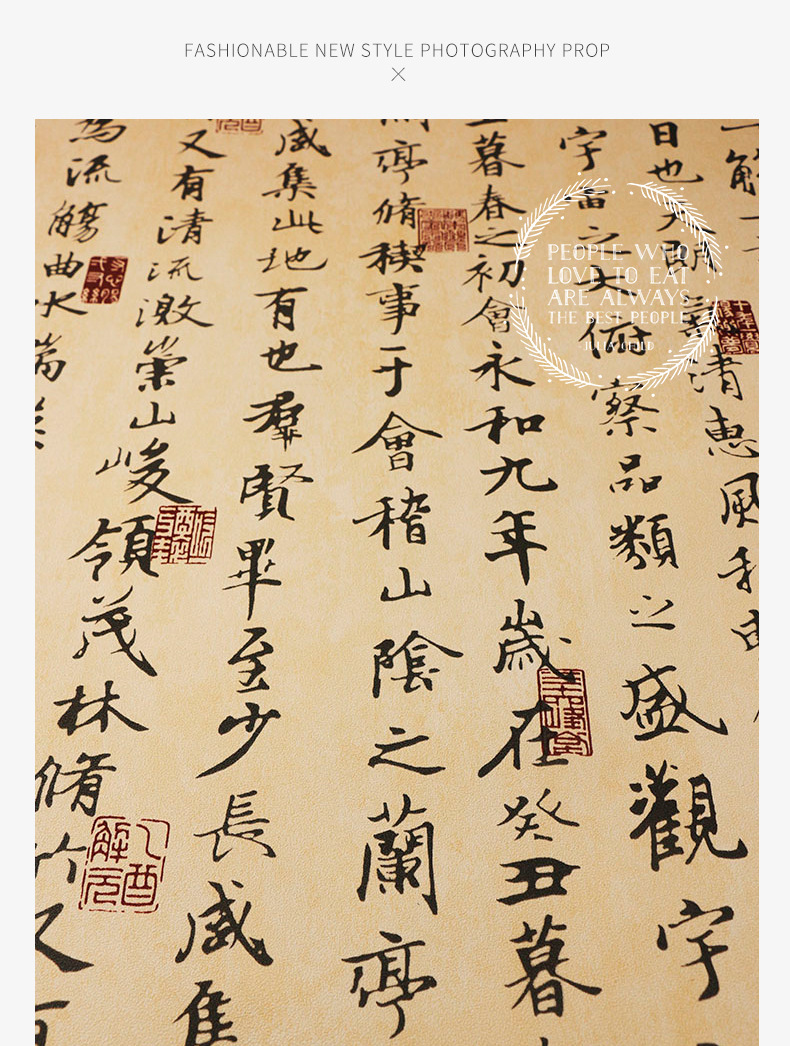 FASHIONABLE NEW STYLE PHOTOGRAPHY PROP
PEOPLE WHO
LOVE TO EAT
ARE ALWAYS
THE BEST PEOPLE
JULIA CHILD
日也天朗氣清惠風和
宇宙之大俯察品類之盛觀宇
暮春之初會永和九年歲在癸丑暮
亭脩禊事于會稽山陰之蘭亭
咸集此地有也羣賢畢至少長咸集
又有清流激崇山峻領茂林脩竹又有
為流觴曲水